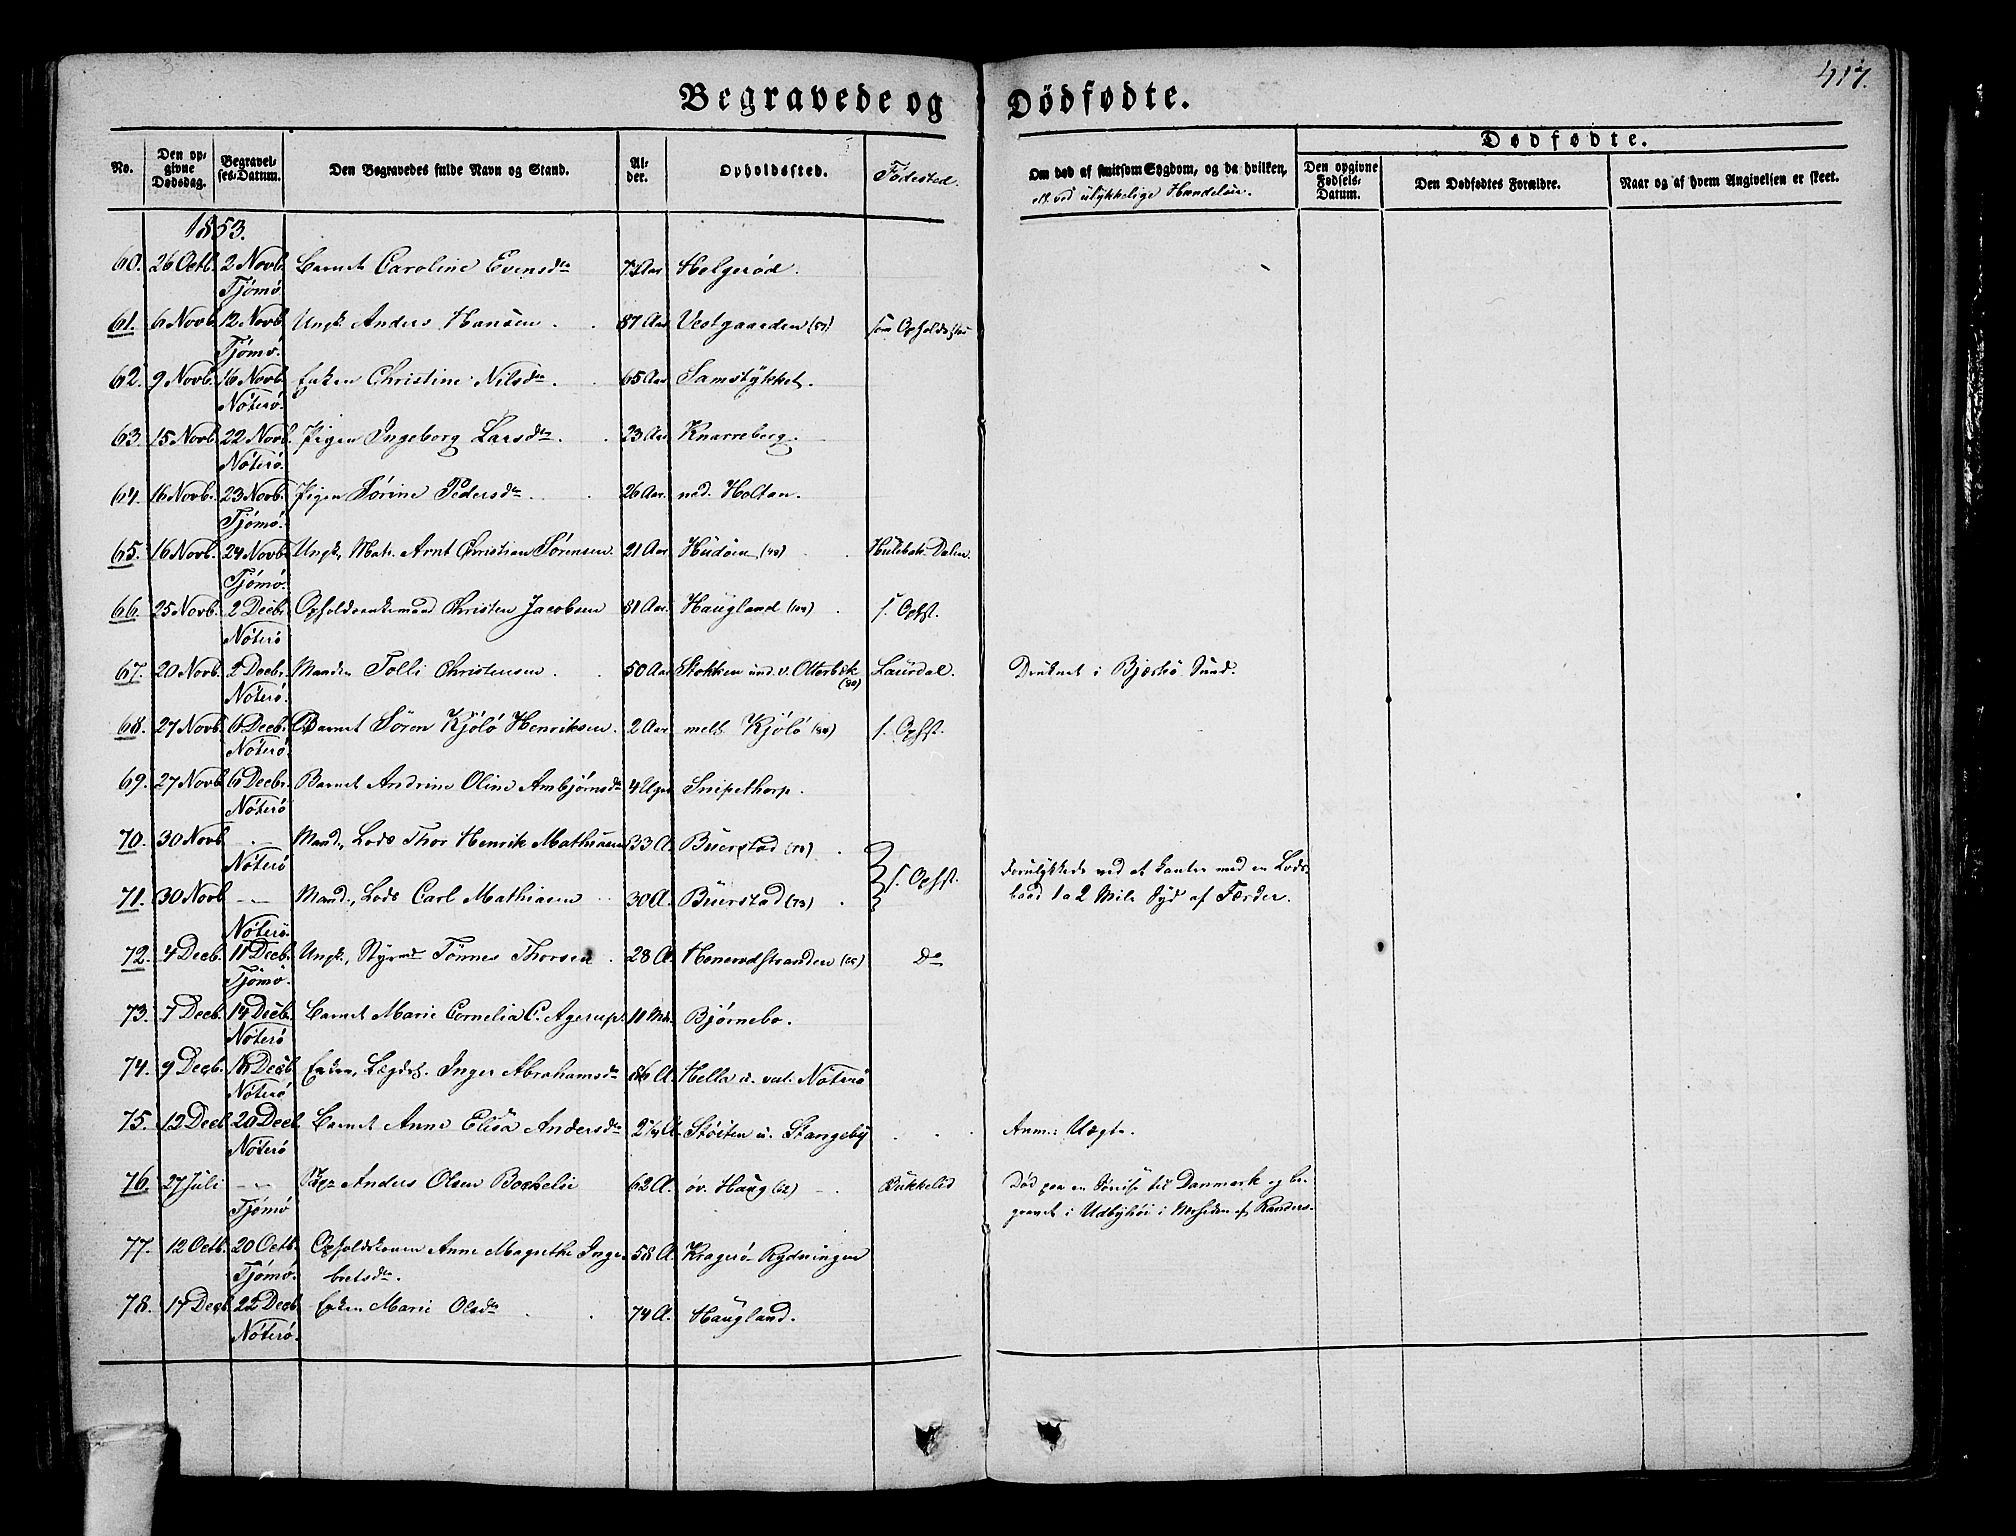 417.
Begravede og Dødfødte.
No.
Den opgivne Dødsdag.
Begravelses-Datum.
Den Begravedes fulde Navn og Stand.
Alder.
Opholdssted.
Fødested.
Om død af smitsom Sygdom, og da hvilken,
el. ved ulykkelige Hændelser.
Dødfødte.
Den opgivne Fødsels-Datum.
Den Dødfødtes Forældre.
Naar og af hvem Angivelsen er skeet.
1853.
60. 26 Octb. 2 Novb. Barnet Caroline Evensdr Helgerød.
Tjømø.
61. 6 Novb. 12 Novb. Ungk. Anders Hansen. 87 Aar. Vestgaarden som Opholdssted
Tjømø.
62. 9 Novb. 16 Novb. Enken Christine Nilsdr. 65 Aar. Samstykket.
Nøterø.
63. 15 Novb. 22 Novb. Pigen Ingeborg Larsdr. 23 Aar Knarreberg.
Nøterø.
64. 16 Novb. 23 Novb. Pigen Sørine Pedersdr. 26 Aar. ned. Holtan.
Tjømø.
65. 16 Novb. 24 Novb. Ungk. Matr. Arnt Christian Sørensen. 21 Aar Hudøen Hulebak-Dalen.
Tjømø.
66. 25 Novb. 2 Decbr. Opholdsenkemand Christen Jacobsen 81 Aar. Haugland f. Ophst.
Nøterø
67. 20 Novb. 2 Decbr. Manden Tolli Christensen. 50 Aar Stokken und. v. Otterbek Laurdal. Druknet i Bjerkø Sund.
Nøterø.
68. 27 Novb. 6 Decbr. Barnet Søren Kjølø Henriksen. 2 Aar mell. Kjølø f. Ophst.
Nøterø.
69. 27 Novb. 6 Decbr. Barnet Andrine Oline Ambjørnsdr 4 Uger Snipethorp.
Nøterø
70. 30 Novb. Mand, Lods Thor Henrik Mathiasen 33 A. Buerstad (73)
Nøterø f. Ophst. Forulykkede ved at kantre med en Lods-
71. 30 Novb. Mand, Lods Carl Mathiasen 30 A. Buerstad (73) baad 1 a 2 Mile Syd af Færder.
Nøterø.
72. 4 Decb. 11 Decb. Ungk, Styrmd Tønnes Thorsen. 28 A. do
Tjømø.
73. 7 Decb. 14 Decb. Barnet Marie Cornelia C. Agerup. 11 Mdr. Bjørnebo.
Nøterø
74. 9 Decb. Enken, Lægdsl. Inger Abrahamsdr 86 A. Hella u. vest. Nøterø
Nøterø
75. 12 Decb. 20 Decb. Barnet Anne Elisa Andersdr Støiten u. Stangeby Anm: Uægte.
Nøterø
76. 27 Juli Anders Olsen Bockelie 62 A. øv. Haug (62) Bukkelid Død paa en Søreise til Danmark og be-
Tjømø gravet i Udbyhøi i Nærheden af Randers.
77. 12 Octb. 20 Octb. Opholdskonen Anne Magrethe Inge- 58 A. Kragerø-Rydningen
Tjømø. bretsdr.
78. 14 Decb. 22 Decb. Enken Marie Olsdr. 74 A. Haugland.
Nøterø.